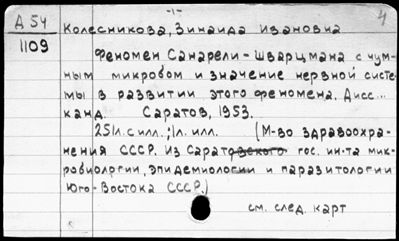 -1-
4
Д 54
1109
Колесникова, Зинаида Ивановна
Феномен Санарели-Шварцмана с чум-
ным микробом и значение нервной систе-
мы в развитии этого феномена. Дисс...
канд. Саратов, 1953.
251л. с илл.; 1л. илл. (М-во здравоохра-
нения СССР. Из Саратовского гос. ин-та мик-
робиологии, эпидемиологии и паразитологии
Юго-Востока СССР.)
см. след. карт